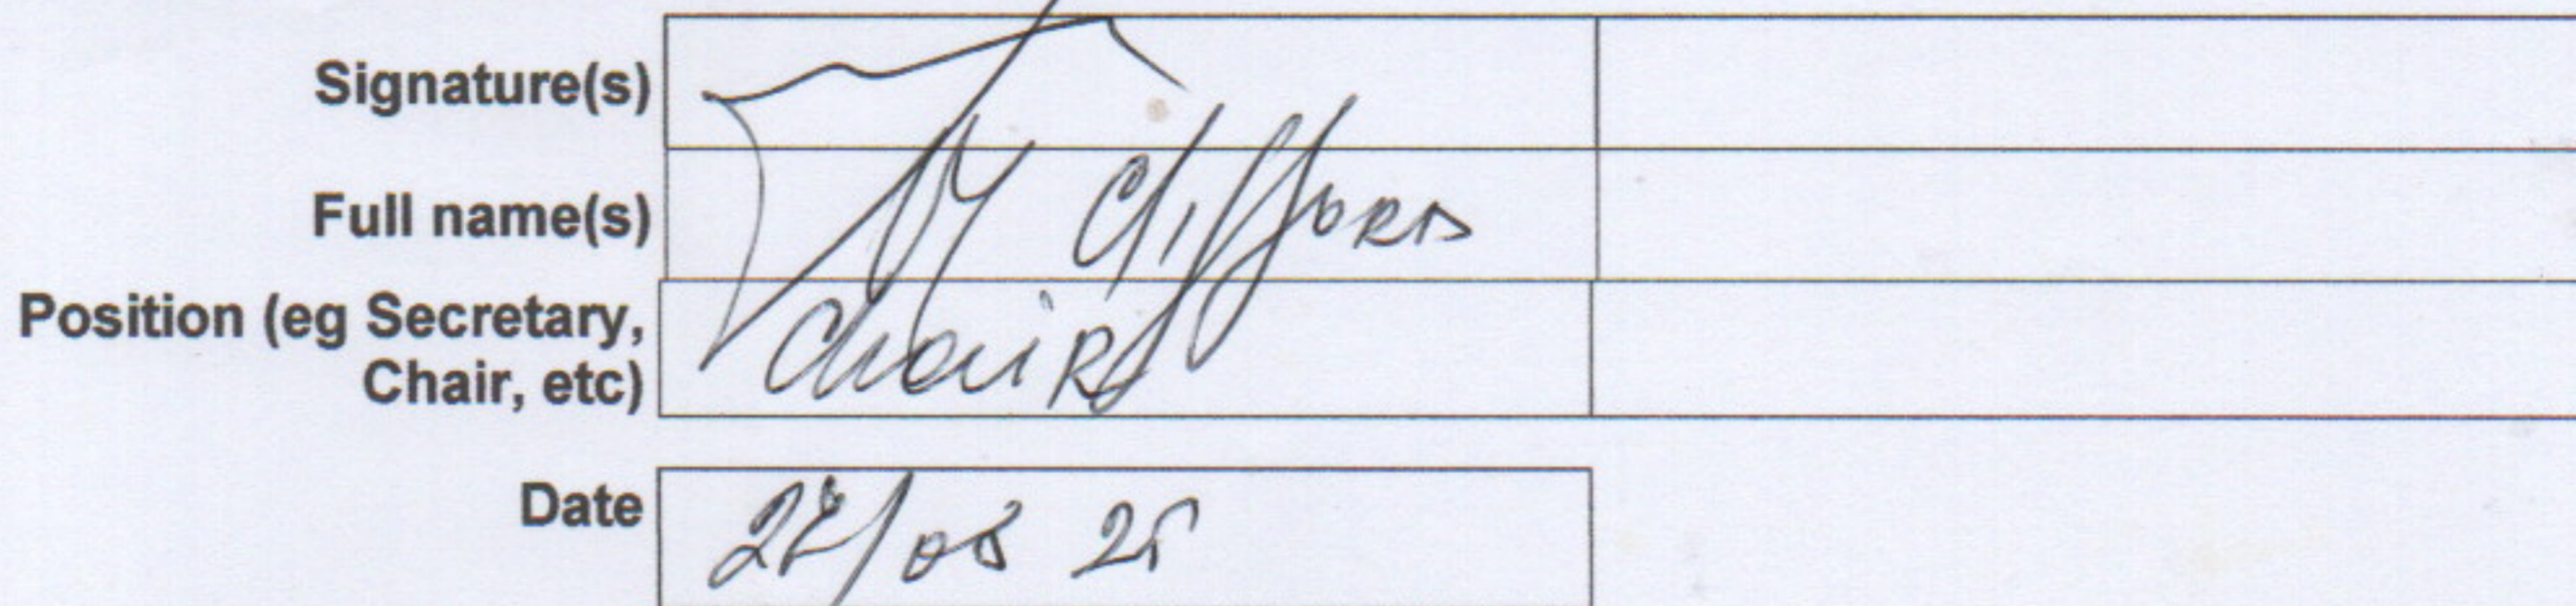 Signature(s)
Full name(s) M Clifford
Position (eg Secretary,
Chair, etc) Chair
Date